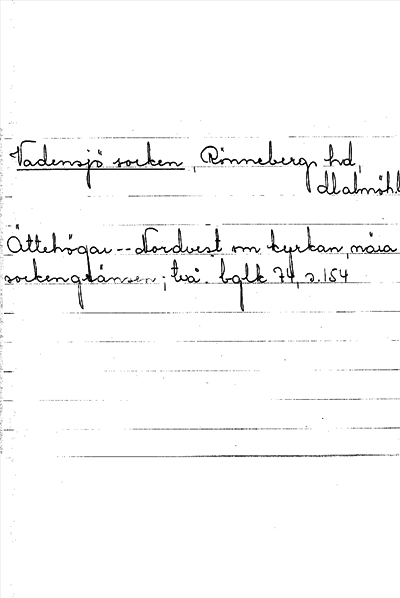 Vadensjö socken, Rönneberg hd,
Malmöhl
Ättehögar -- Nordvest om kyrkan, nära
sockengränsen; två. bglk 74, s. 154